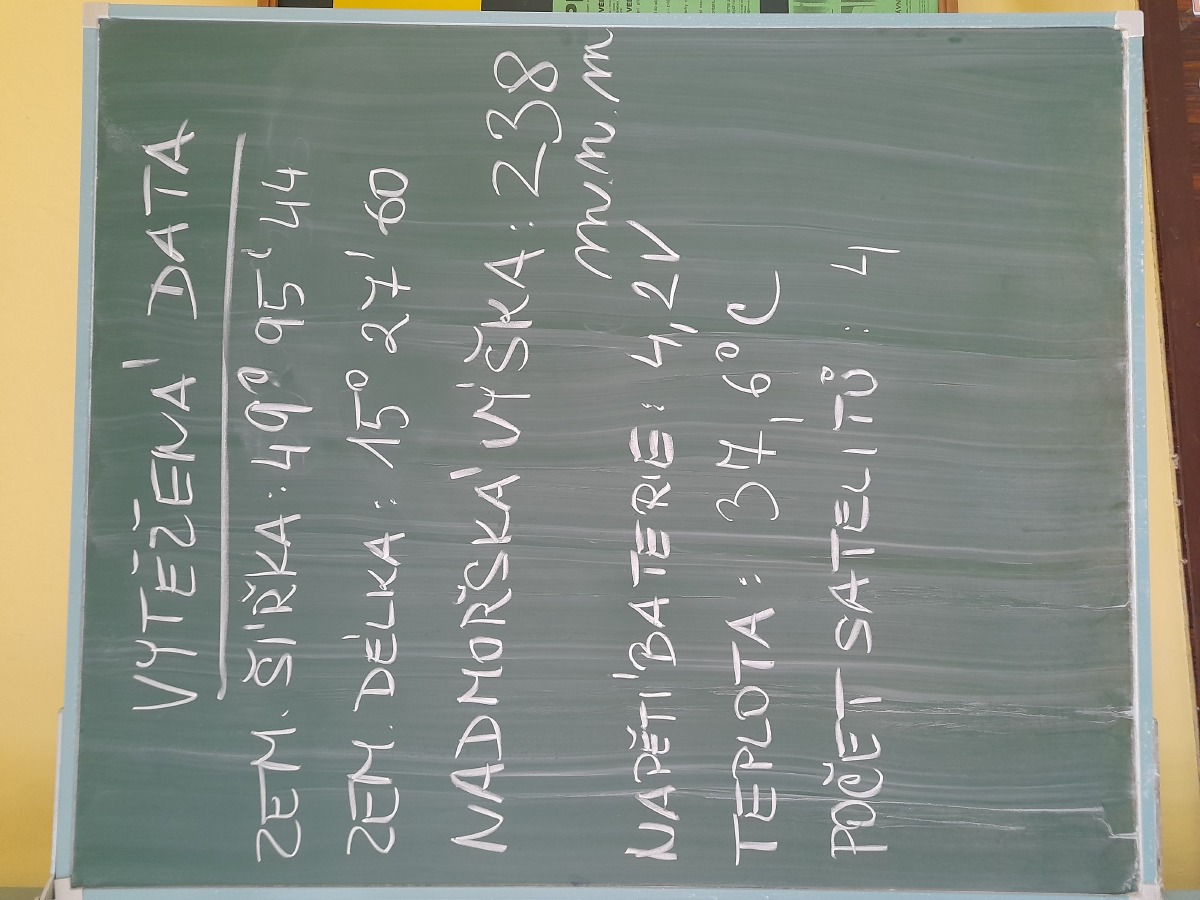 VYTĚŽENÁ DATA
ZEM. ŠÍŘKA: 49° 95' 44
ZEM. DÉLKA: 15° 27' 60
NADMOŘSKÁ VÝŠKA: 238
m.n.m
NAPĚTÍ BATERIE: 4,2V
TEPLOTA: 37,6°C
POČET SATELITŮ: 4